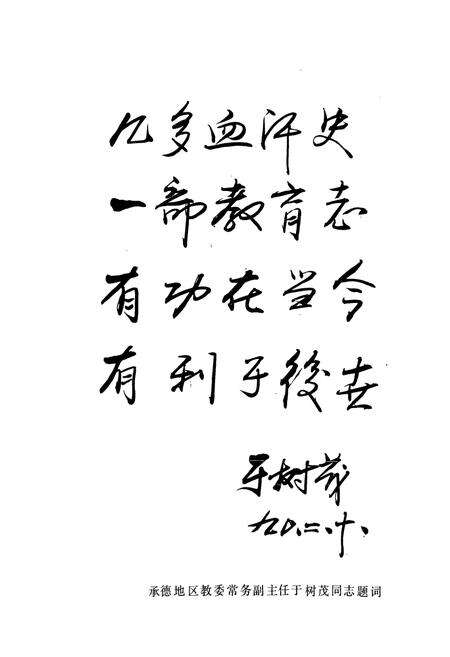 几多血汗史
一部教育志
有功在当今
有利于後世
于树茂
九〇.二.十.
承德地区教委常务副主任于树茂同志题词